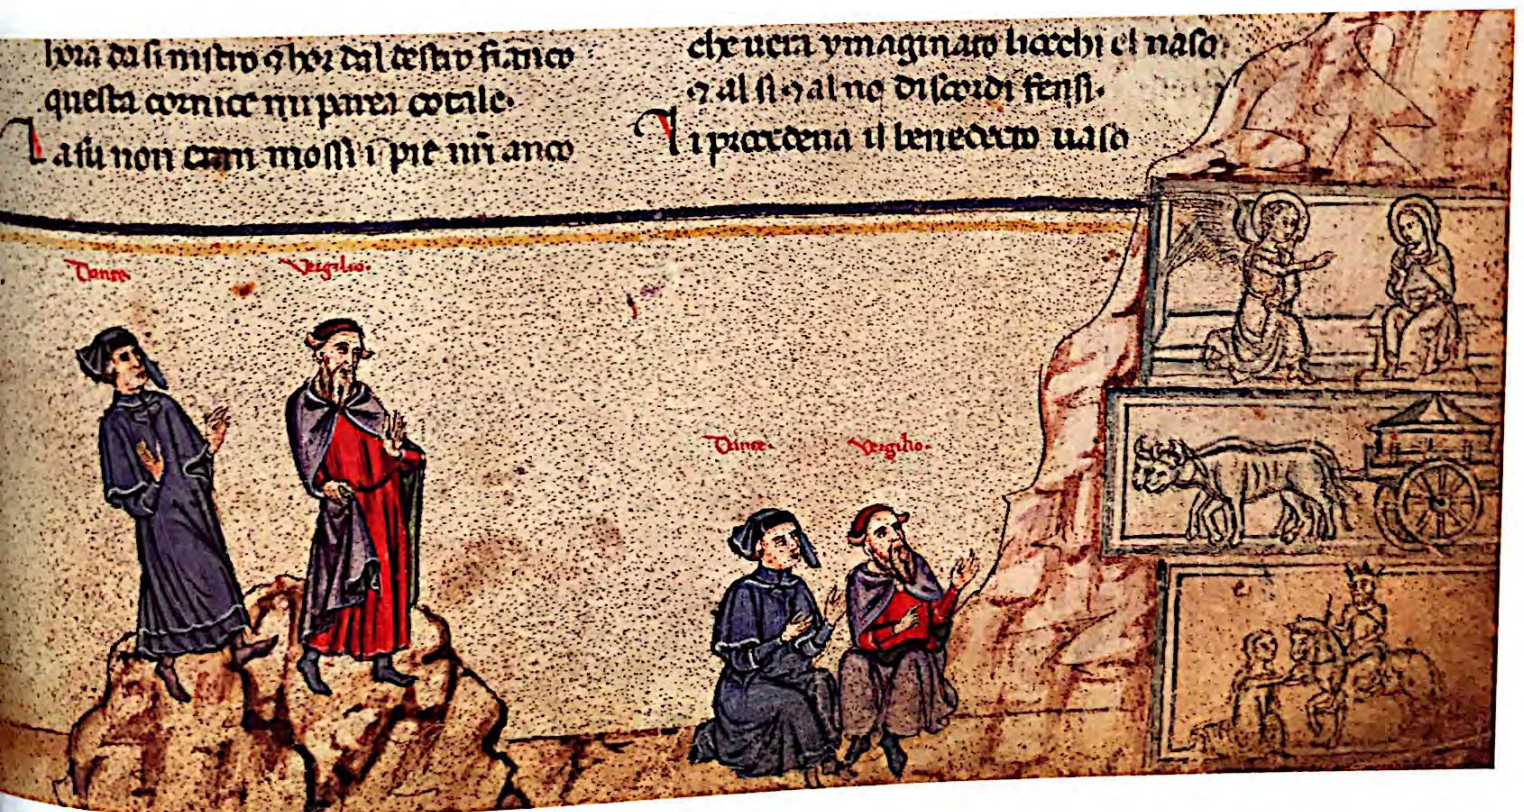 hora da sinistro ⁊ hor dal destro fianco
questa cornice mi parea cotale.
La su non eran mossi i pie nr̄i anco
che uera ymaginato liocchi el naso
⁊ al si ⁊ al no discordi fensi.
Li precedeua il benedecto uaso
Dante. Vergilio.
Dante. Vergilio.